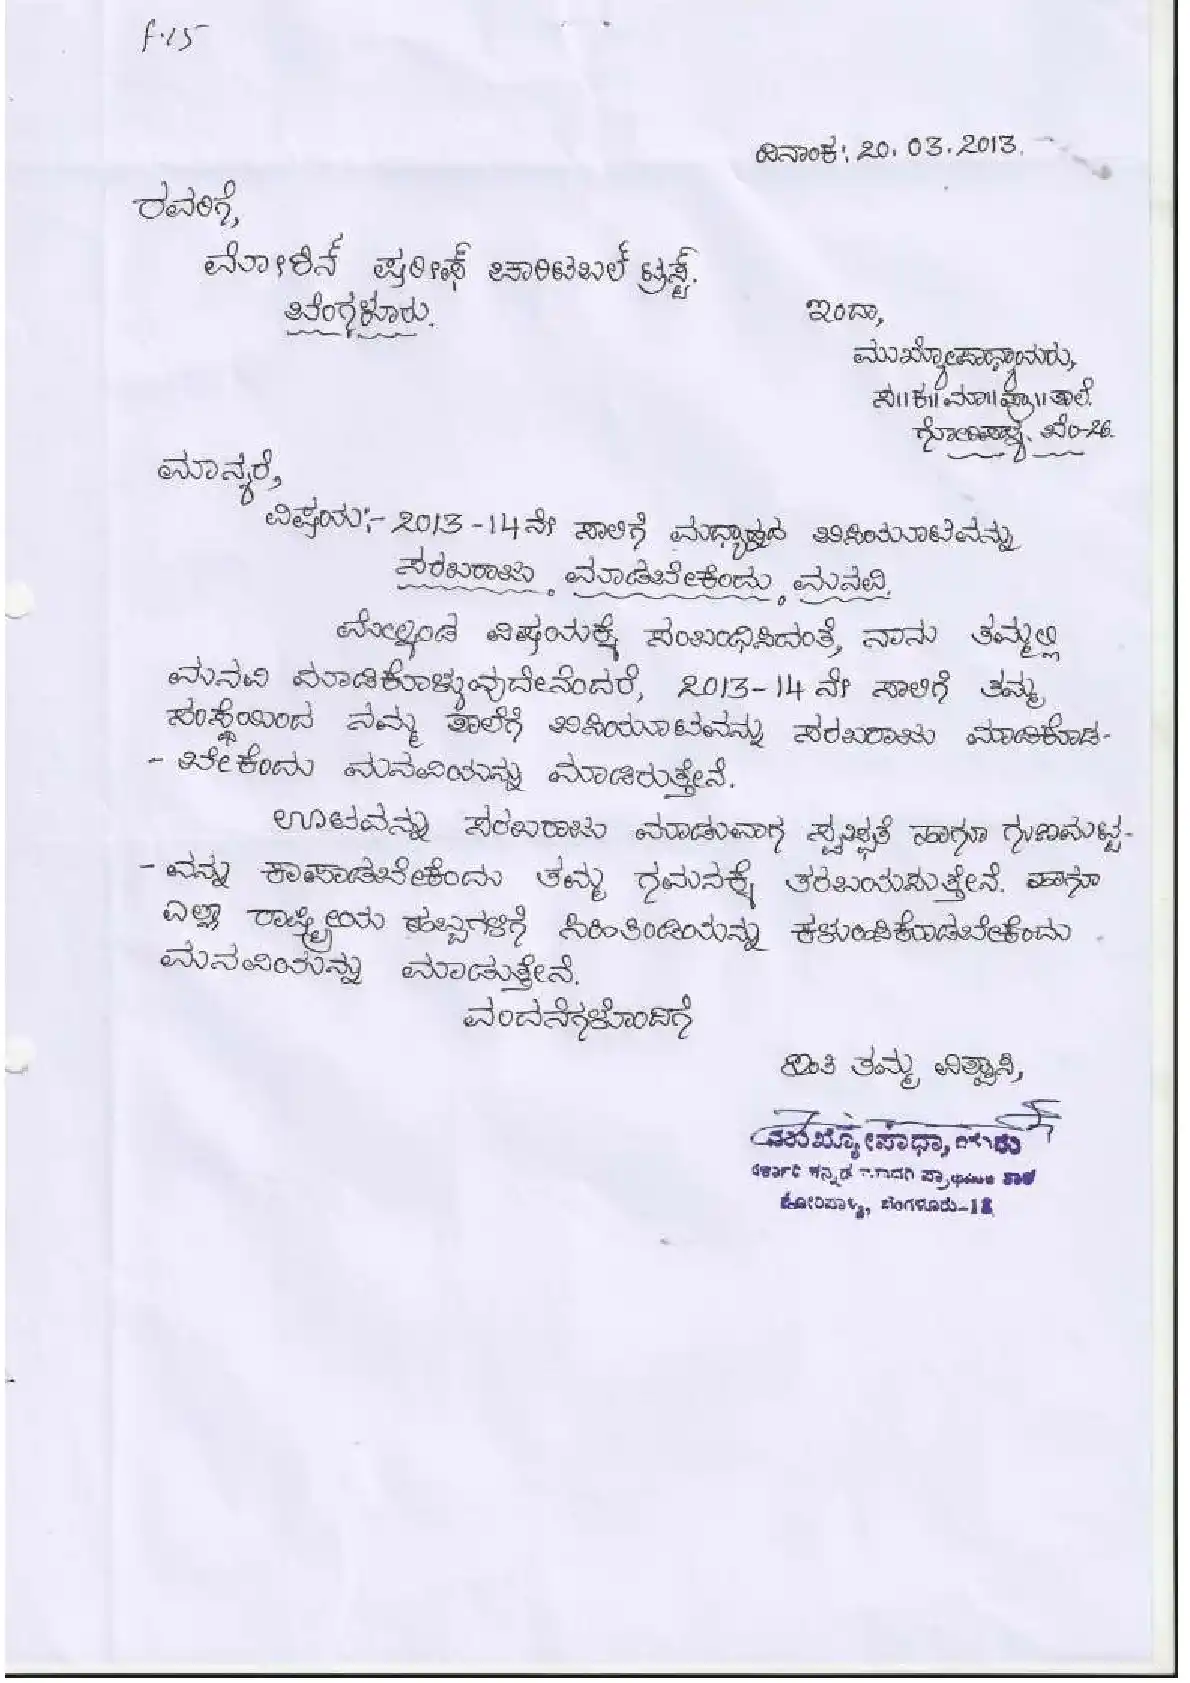 f.15
ದಿನಾಂಕ: 20.03.2013.
ರವರಿಗೆ,
ಮೋಶಿನ್ ಷರೀಫ್ ಚಾರಿಟಬಲ್ ಟ್ರಸ್ಟ್.
ಬೆಂಗಳೂರು.
ಇಂದಾ,
ಮುಖ್ಯೋಪಾಧ್ಯಾಯರು,
ಸ॥ಕ॥ಮಾ॥ಪ್ರಾ॥ಶಾಲೆ.
ಗೋರಿಪಾಳ್ಯ. ಬೆಂ-26.
ಮಾನ್ಯರೆ,
ವಿಷಯ:- 2013-14ನೇ ಸಾಲಿಗೆ ಮಧ್ಯಾಹ್ನದ ಬಿಸಿಯೂಟವನ್ನು
ಸರಬರಾಜು ಮಾಡಬೇಕೆಂದು ಮನವಿ.
ಮೇಲ್ಕಂಡ ವಿಷಯಕ್ಕೆ ಸಂಬಂಧಿಸಿದಂತೆ, ನಾನು ತಮ್ಮಲ್ಲಿ
ಮನವಿ ಮಾಡಿಕೊಳ್ಳುವುದೇನೆಂದರೆ, 2013-14 ನೇ ಸಾಲಿಗೆ ತಮ್ಮ
ಸಂಸ್ಥೆಯಿಂದ ನಮ್ಮ ಶಾಲೆಗೆ ಬಿಸಿಯೂಟವನ್ನು ಸರಬರಾಜು ಮಾಡಿಕೊಡ-
- ಬೇಕೆಂದು ಮನವಿಯನ್ನು ಮಾಡಿರುತ್ತೇನೆ.
ಊಟವನ್ನು ಸರಬರಾಜು ಮಾಡುವಾಗ ಸ್ವಚ್ಛತೆ ಹಾಗೂ ಗುಣಮಟ್ಟ-
- ವನ್ನು ಕಾಪಾಡಬೇಕೆಂದು ತಮ್ಮ ಗಮನಕ್ಕೆ ತರಬಯಸುತ್ತೇನೆ. ಹಾಗೂ
ಎಲ್ಲಾ ರಾಷ್ಟ್ರೀಯ ಹಬ್ಬಗಳಿಗೆ ಸಿಹಿತಿಂಡಿಯನ್ನು ಕಳುಹಿಸಿಕೊಡಬೇಕೆಂದು
ಮನವಿಯನ್ನು ಮಾಡುತ್ತೇನೆ.
ವಂದನೆಗಳೊಂದಿಗೆ
ಇಂತಿ ತಮ್ಮ ವಿಶ್ವಾಸಿ,
ಮುಖ್ಯೋಪಾಧ್ಯಾಯರು
ಸರ್ಕಾರಿ ಕನ್ನಡ ಮಾದರಿ ಪ್ರಾಥಮಿಕ ಶಾಲೆ
ಗೋರಿಪಾಳ್ಯ, ಬೆಂಗಳೂರು-18